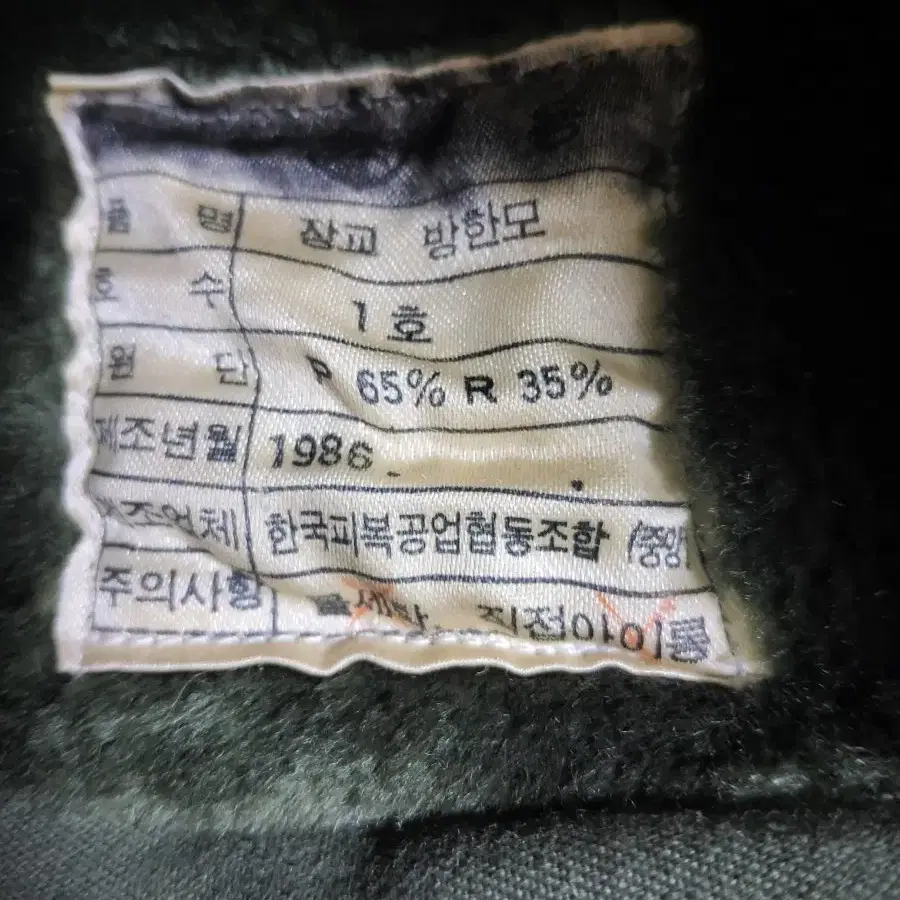 품 명 장교 방한모
호 수 1호
원 단 P 65% R 35%
제조년월 1986.
제조업체 한국피복공업협동조합 (중앙
주의사항 물세탁. 직접아이롱